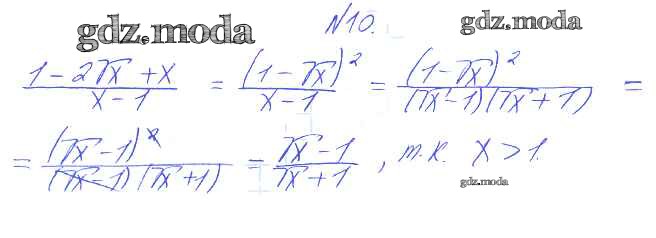 №10.
gdz.moda gdz.moda
(1 - 2√x + x)/(x - 1) = (1 - √x)²/(x - 1) = (1 - √x)²/((√x - 1)(√x + 1)) =
= (√x - 1)²/((√x - 1)(√x + 1)) = (√x - 1)/(√x + 1), т.к. x > 1.
gdz.moda